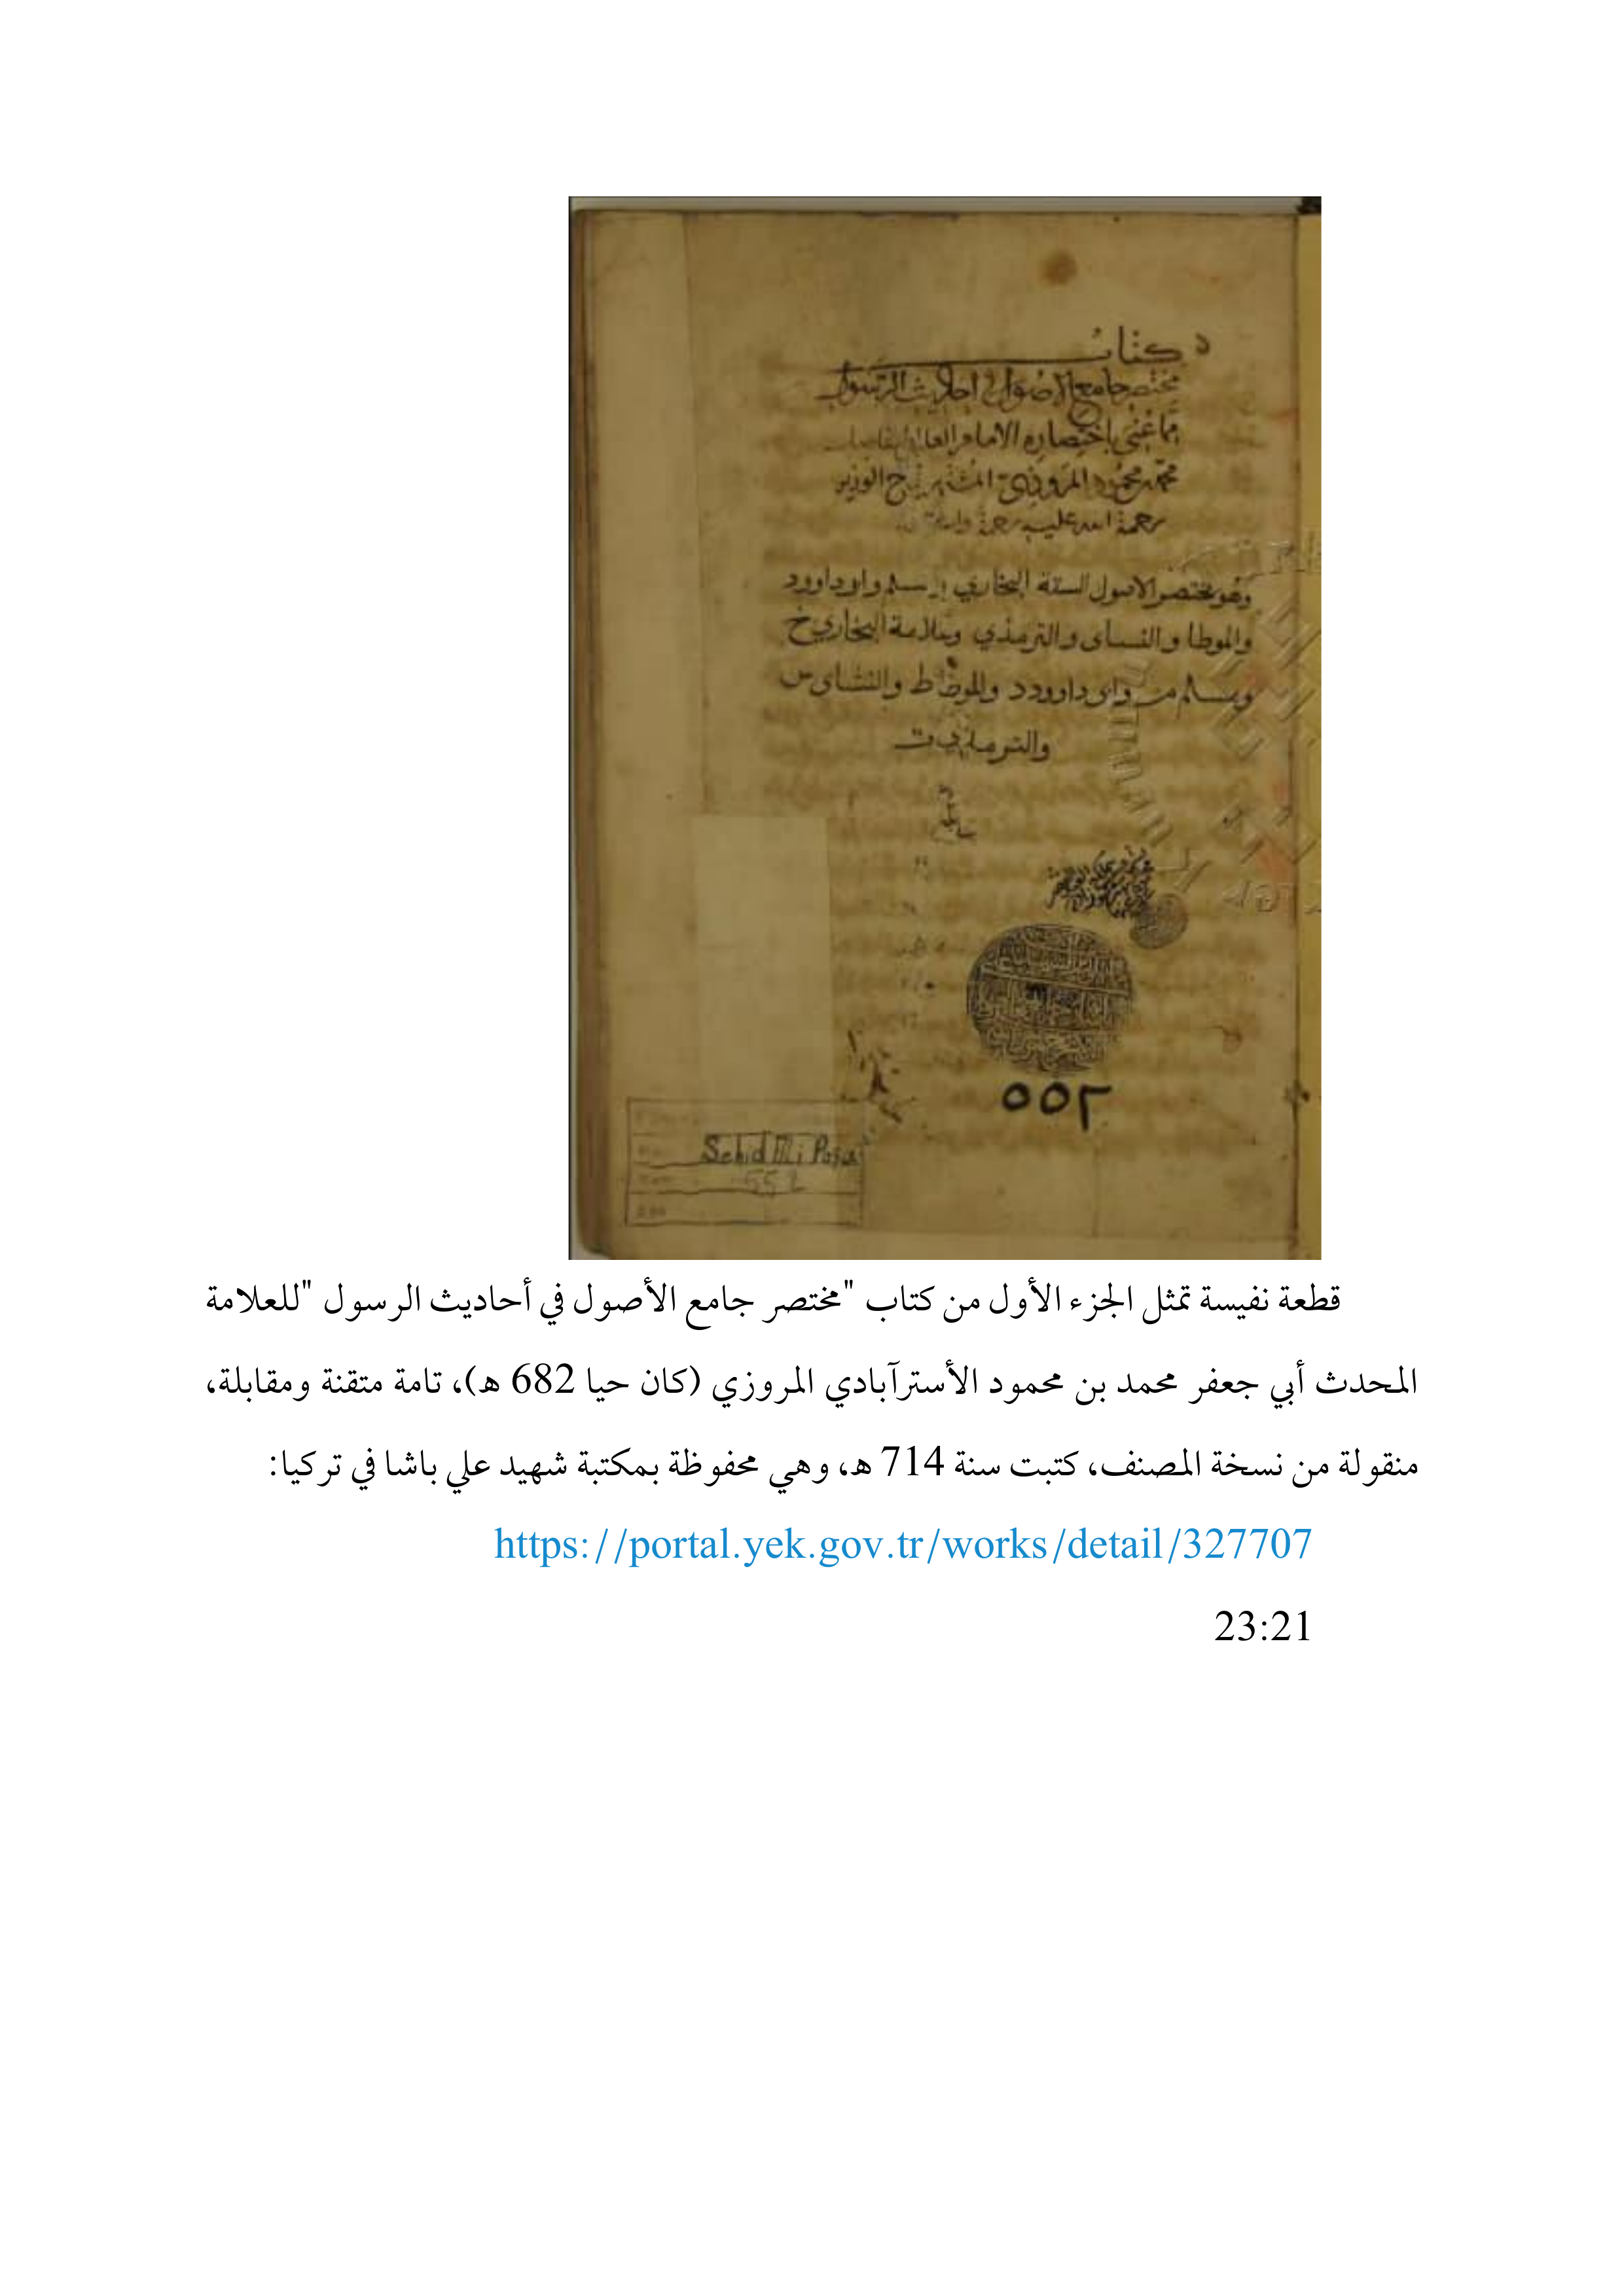 كتاب
مختصر جامع الاصول احاديث الرسول
مما عني باختصاره الامام العالم
محمد محمود المروزي المشتهر بتاج الوزير
رحمة الله عليه رحمة
وهو مختصر الاصول الستة البخاري ومسلم وابو داوود
والموطا والنساى والترمذي وعلامة البخاري خ
ومسلم م وابى داوود د والموطا ط والنساى س
والترمذي ت
٥٥٢
Sehid Ali Paşa
552
قطعة نفيسة تمثل الجزء الأول من كتاب "مختصر جامع الأصول في أحاديث الرسول "للعلامة
المحدث أبي جعفر محمد بن محمود الأسترآبادي المروزي (كان حيا 682 هـ)، تامة متقنة ومقابلة،
منقولة من نسخة المصنف، كتبت سنة 714 هـ، وهي محفوظة بمكتبة شهيد علي باشا في تركيا:
https://portal.yek.gov.tr/works/detail/327707
23:21